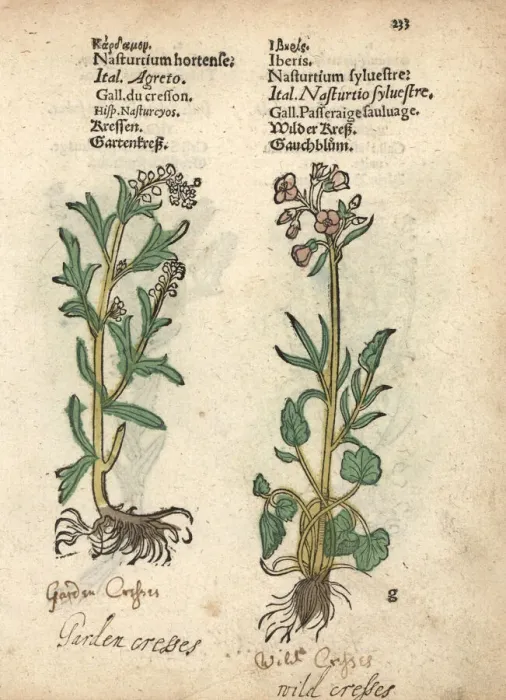 233
Κάρδαμομ.
Naſturtium hortenſe:
Ital. Agreto.
Gall. du creſſon.
Hiſp. Naſturcyos.
Kreſſen.
Gartenkreß.
Iberis.
Naſturtium ſylueſtre:
Ital. Naſturtio ſylueſtre.
Gall. Paſſeraige ſauluage.
Wilder Kreß.
Gauchblům.
g
Garden Cresses
Garden cresses
Wild Cresses
wild cresses